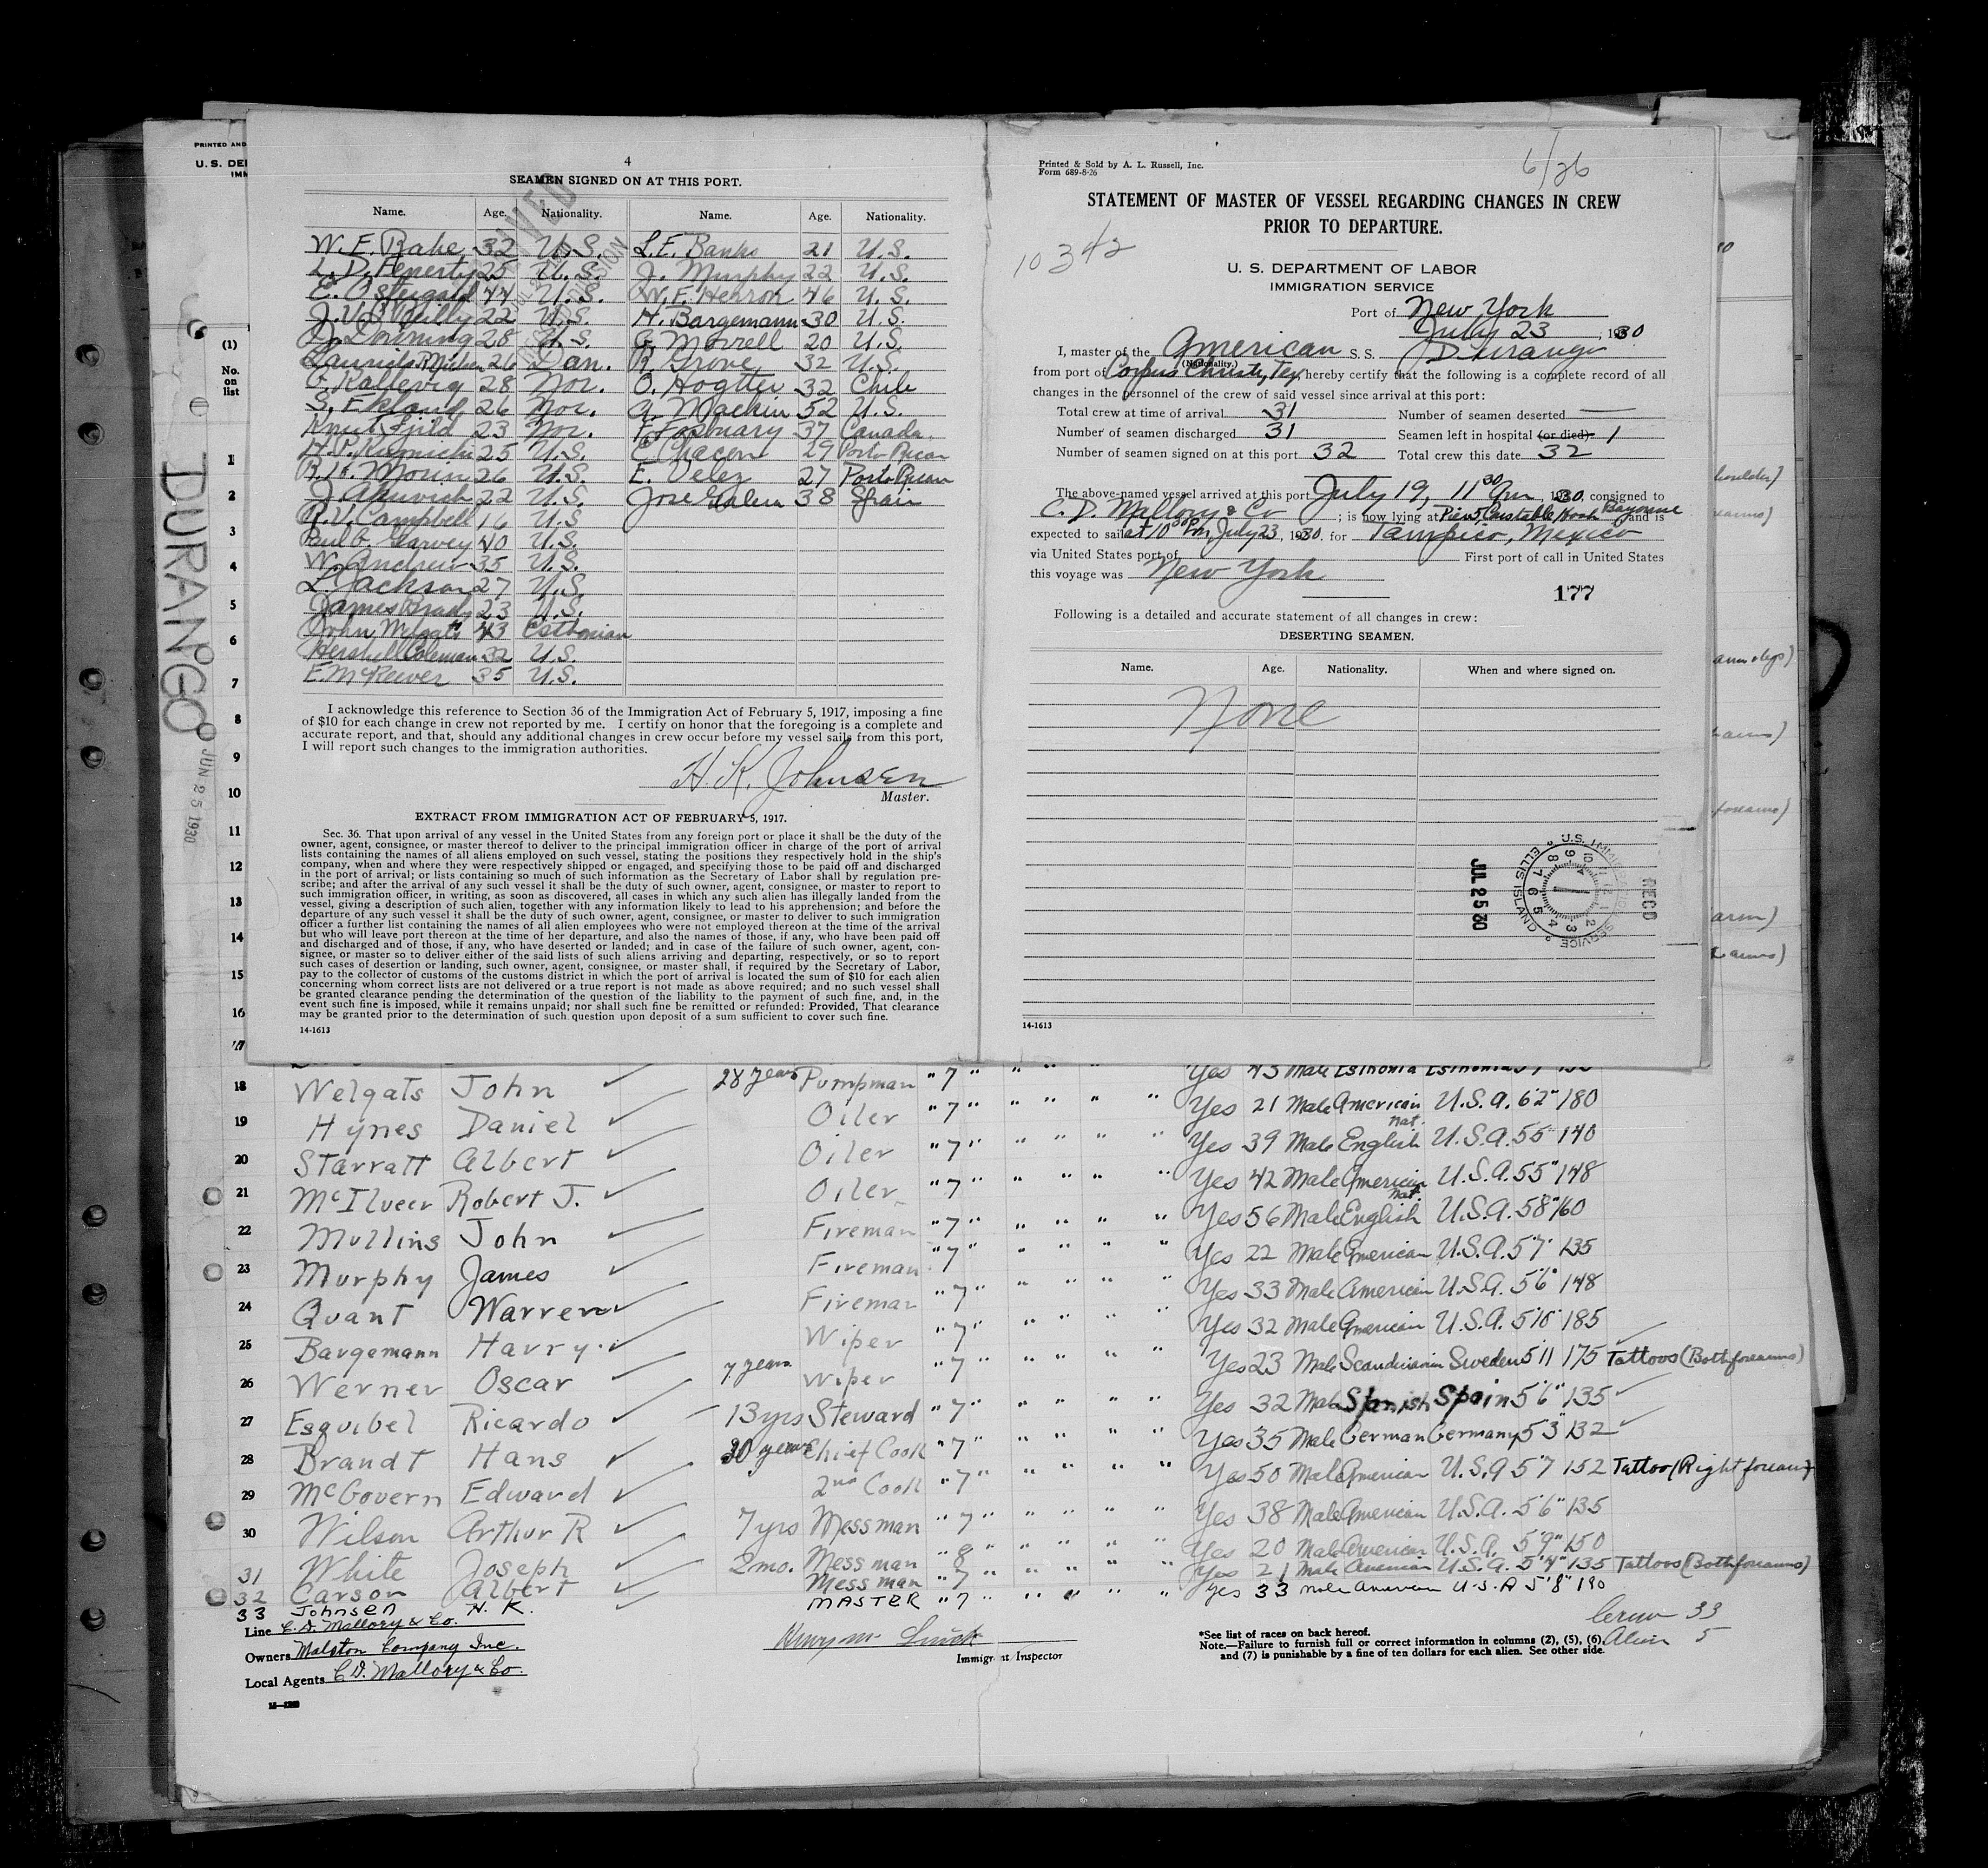 PRINTED AND
U. S. DE
IMM
(1)
No.
on
list
DURANGO
JUN 25 1930
4
SEAMEN SIGNED ON AT THIS PORT.
Name. Age. Nationality. Name. Age. Nationality.
W. E. Rahe 32 U.S. L.E. Banks 21 U.S.
L. D. Fenerty 25 U.S. J. Murphy 22 U.S.
E. 44 U.S. W. F. Herron 46 U.S.
J. V. O'Reilly 22 U.S. H. Bargemann 30 U.S.
J. Downing 28 U.S. G. Morrell 20 U.S.
26 Dan. R. Grove 32 U.S.
O. Kallevig 28 Nor. O. 32 Chile
S. Ekland 26 Nor. A. Mackin 52 U.S.
Knut 23 Nor. 37 Canada.
H. P. 25 U.S. C. Chacon 29 Porto Rican
R. H. Morin 26 U.S. E. Velez 27 Porto Rican
J. 22 U.S. Jose 38 Spain
R. V. Campbell 16 U.S.
Paul G. Garvey 40 U.S.
W. Andrew 35 U.S.
L. Jackson 27 U.S.
James Brady 23 U.S.
John Welgats 43 Esthonian
Hershell Coleman 32 U.S.
E. McKeever 35 U.S.
I acknowledge this reference to Section 36 of the Immigration Act of February 5, 1917, imposing a fine
of $10 for each change in crew not reported by me. I certify on honor that the foregoing is a complete and
accurate report, and that, should any additional changes in crew occur before my vessel sails from this port,
I will report such changes to the immigration authorities.
H. K. Johnsen
Master.
EXTRACT FROM IMMIGRATION ACT OF FEBRUARY 5, 1917.
Sec. 36. That upon arrival of any vessel in the United States from any foreign port or place it shall be the duty of the
owner, agent, consignee, or master thereof to deliver to the principal immigration officer in charge of the port of arrival
lists containing the names of all aliens employed on such vessel, stating the positions they respectively hold in the ship's
company, when and where they were respectively shipped or engaged, and specifying those to be paid off and discharged
in the port of arrival; or lists containing so much of such information as the Secretary of Labor shall by regulation pre-
scribe; and after the arrival of any such vessel it shall be the duty of such owner, agent, consignee, or master to report to
such immigration officer, in writing, as soon as discovered, all cases in which any such alien has illegally landed from the
vessel, giving a description of such alien, together with any information likely to lead to his apprehension; and before the
departure of any such vessel it shall be the duty of such owner, agent, consignee, or master to deliver to such immigration
officer a further list containing the names of all alien employees who were not employed thereon at the time of the arrival
but who will leave port thereon at the time of her departure, and also the names of those, if any, who have been paid off
and discharged and of those, if any, who have deserted or landed; and in case of the failure of such owner, agent, con-
signee, or master so to deliver either of the said lists of such aliens arriving and departing, respectively, or so to report
such cases of desertion or landing, such owner, agent, consignee, or master shall, if required by the Secretary of Labor,
pay to the collector of customs of the customs district in which the port of arrival is located the sum of $10 for each alien
concerning whom correct lists are not delivered or a true report is not made as above required; and no such vessel shall
be granted clearance pending the determination of the question of the liability to the payment of such fine, and, in the
event such fine is imposed, while it remains unpaid; nor shall such fine be remitted or refunded: Provided, That clearance
may be granted prior to the determination of such question upon deposit of a sum sufficient to cover such fine.
14-1613
Printed & Sold by A. L. Russell, Inc.
Form 689-8-26
6/26
10342
STATEMENT OF MASTER OF VESSEL REGARDING CHANGES IN CREW
PRIOR TO DEPARTURE.
U. S. DEPARTMENT OF LABOR
IMMIGRATION SERVICE
Port of New York
July 23, 1930
I, master of the American S. S. Durango
(Nationality.)
from port of Corpus Christi, Tex, hereby certify that the following is a complete record of all
changes in the personnel of the crew of said vessel since arrival at this port:
Total crew at time of arrival 31 Number of seamen deserted —
Number of seamen discharged 31 Seamen left in hospital (or died) 1
Number of seamen signed on at this port 32 Total crew this date 32
The above-named vessel arrived at this port July 19, 11 30 Am, 1930, consigned to
C. D. Mallory & Co; is now lying at Pier 5, Constable Hook Bayonne and is
expected to sail at 10 30 Pm, July 23, 1930, for Tampico, Mexico
via United States port of First port of call in United States
this voyage was New York
177
Following is a detailed and accurate statement of all changes in crew:
DESERTING SEAMEN.
Name. Age. Nationality. When and where signed on.
None
REC'D
U.S. IMMIGRATION SERVICE ELLIS ISLAND
JUL 25 30
14-1613
1
2
3
4
5
6
7
8
9
10
11
12
13
14
15
16
17
18 Welgats John 28 years Pumpman " 7 " Yes 43 Male Esthonia Esthonia
19 Hynes Daniel Oiler " 7 " Yes 21 Male American U.S.A. 6'2" 180
20 Starratt Albert Oiler " 7 " Yes 39 Male English nat. U.S.A. 5'5 140
21 McIlveer Robert J. Oiler " 7 " Yes 42 Male American U.S.A. 5'5" 148
22 Mullins John Fireman " 7 " Yes 56 Male English nat. U.S.A. 5'8" 160
23 Murphy James Fireman " 7 " Yes 22 Male American U.S.A. 5'7" 135
24 Quant Warren Fireman " 7 " Yes 33 Male American U.S.A. 5'6" 148
25 Bargemann Harry Wiper " 7 " Yes 32 Male American U.S.A. 5'10" 185
26 Werner Oscar 7 years Wiper " 7 " Yes 23 Male Scandinavian Sweden 5 11 175 Tattoos (Both forearms)
27 Esquibel Ricardo 13 yrs Steward " 7 " Yes 32 Male Spanish Spain 5'6" 135
28 Brandt Hans 20 years Chief Cook " 7 " Yes 35 Male German Germany 5'3" 132
29 McGovern Edward 2nd Cook " 7 " Yes 50 Male American U.S.A 5'7 152 Tattoo (Right forearm)
30 Wilson Arthur R 7 yrs Messman " 7 " Yes 38 Male American U.S.A. 5'6" 135
31 White Joseph 2 mo. Mess man " 8 " Yes 20 Male American U.S.A. 5'9" 150
32 Carson Albert Mess man " 7 " Yes 21 Male American U.S.A. 5'4" 135 Tattoos (Both forearms)
33 Johnsen H. K. MASTER " 7 " Yes 33 male American U.S.A 5'8" 190
Line C. D. Mallory & Co.
Owners Malston Company Inc.
Local Agents C. D. Mallory & Co.
Immigrant Inspector
*See list of races on back hereof.
Note.—Failure to furnish full or correct information in columns (2), (5), (6)
and (7) is punishable by a fine of ten dollars for each alien. See other side.
Crew 33
Alien 5